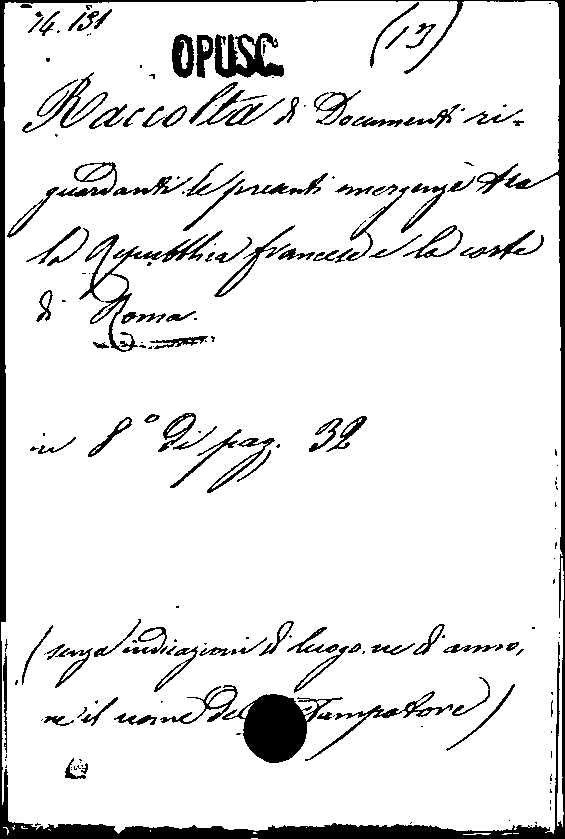 74. 131
(13)
OPUSC.
Raccolta di Documenti ri=
guardanti le presenti emergenze tra
la Repubblica francese e la corte
di Roma.
in 8° di pag. 32
(senza indicazioni di luogo, ne di anno,
ne il nome dello Stampatore)